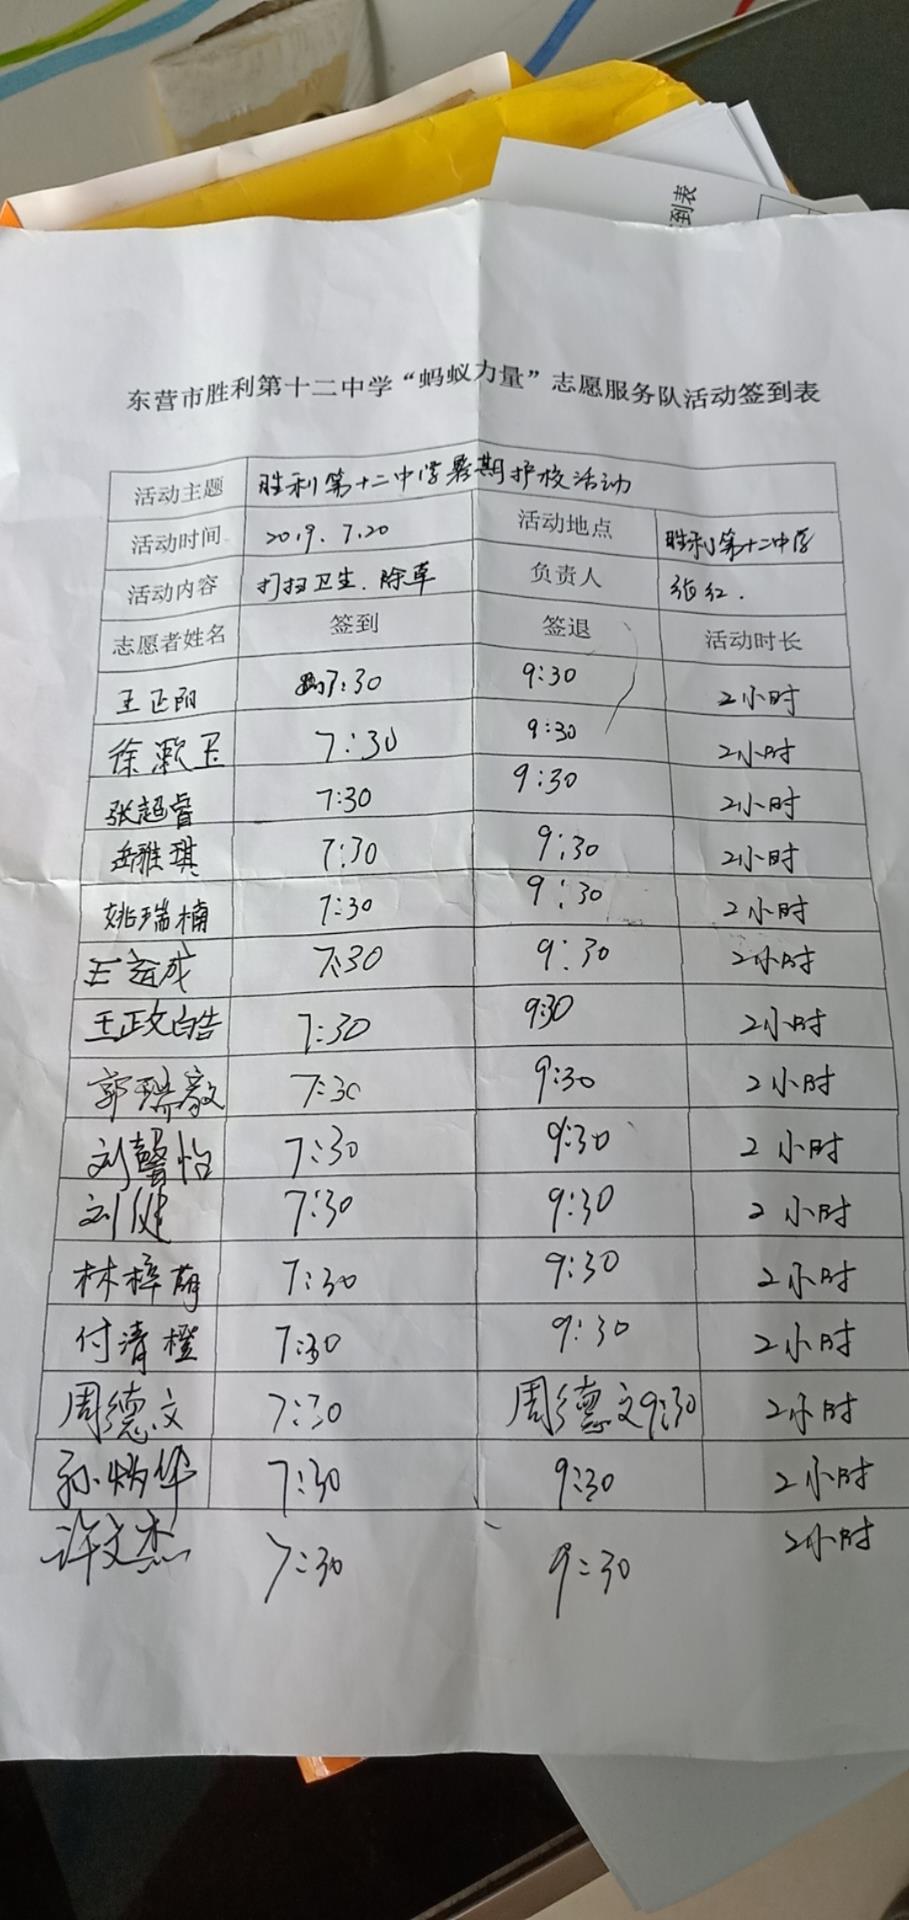 到表
东营市胜利第十二中学“蚂蚁力量”志愿服务队活动签到表
活动主题 胜利第十二中学暑期护校活动
活动时间 2019.7.20 活动地点 胜利第十二中学
活动内容 打扫卫生.除草 负责人 张红.
志愿者姓名 签到 签退 活动时长
王正阳 7:30 9:30 2小时
徐灏玉 7:30 9:30 2小时
张超睿 7:30 9:30 2小时
岳雅琪 7:30 9:30 2小时
姚瑞楠 7:30 9:30 2小时
王运成 7:30 9:30 2小时
王正文皓 7:30 9:30 2小时
郭瑞毅 7:30 9:30 2小时
刘馨怡 7:30 9:30 2小时
刘健 7:30 9:30 2小时
林梓萌 7:30 9:30 2小时
付清橙 7:30 9:30 2小时
周德文 7:30 周德文9:30 2小时
孙炳华 7:30 9:30 2小时
许文杰 7:30 9:30 2小时